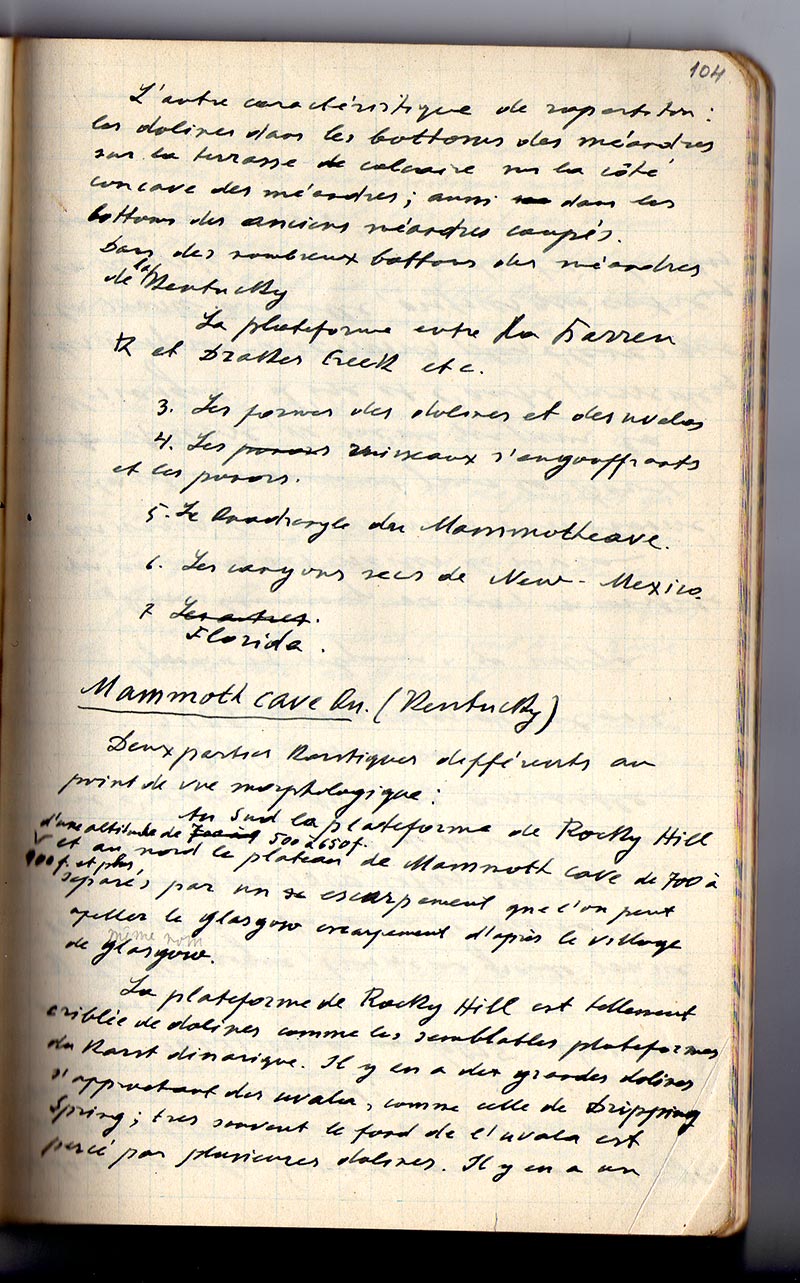 104
L'autre caractéristique de repartition :
les dolines dans les bottoms des méandres
sur la terrasse de calcaire sur la côté
concave des méandres ; aussi dans les
bottoms des anciens méandres coupés.
Dans des nombreux bottoms des méandres
de la Kentucky
La plateforme entre la Barren
R et Drakes Creek etc.
3. Les formes des dolines et des uvalas
4. Les ponors ruisseaux s'engouffrants
et les ponors.
5. Le Quadrangle du Mammoth cave.
6. Les canyons secs de New-Mexico.
7 Les autres.
Florida.
Mammoth cave Qu. (Kentucky)
Deux parties Karstiques différents au
point de vue morphologique :
Au Sud la plateforme de Rocky Hill
d'une altitude de 500 à 650 f.
et au nord le plateau de Mammoth cave de 700 à
900 f. et plus
separés par un escarpement que l'on peut
apeller le Glasgow escarpement d'après le village
même nom
de Glasgow.
La plateforme de Rocky Hill est tellement
criblée de dolines comme les semblables plateformes
du Karst dinarique. Il y en a des grandes dolines
s'approchant des uvala, comme celle de Dripping
Spring ; tres souvent le fond de l'uvala est
percé par plusieures dolines. Il y en a un